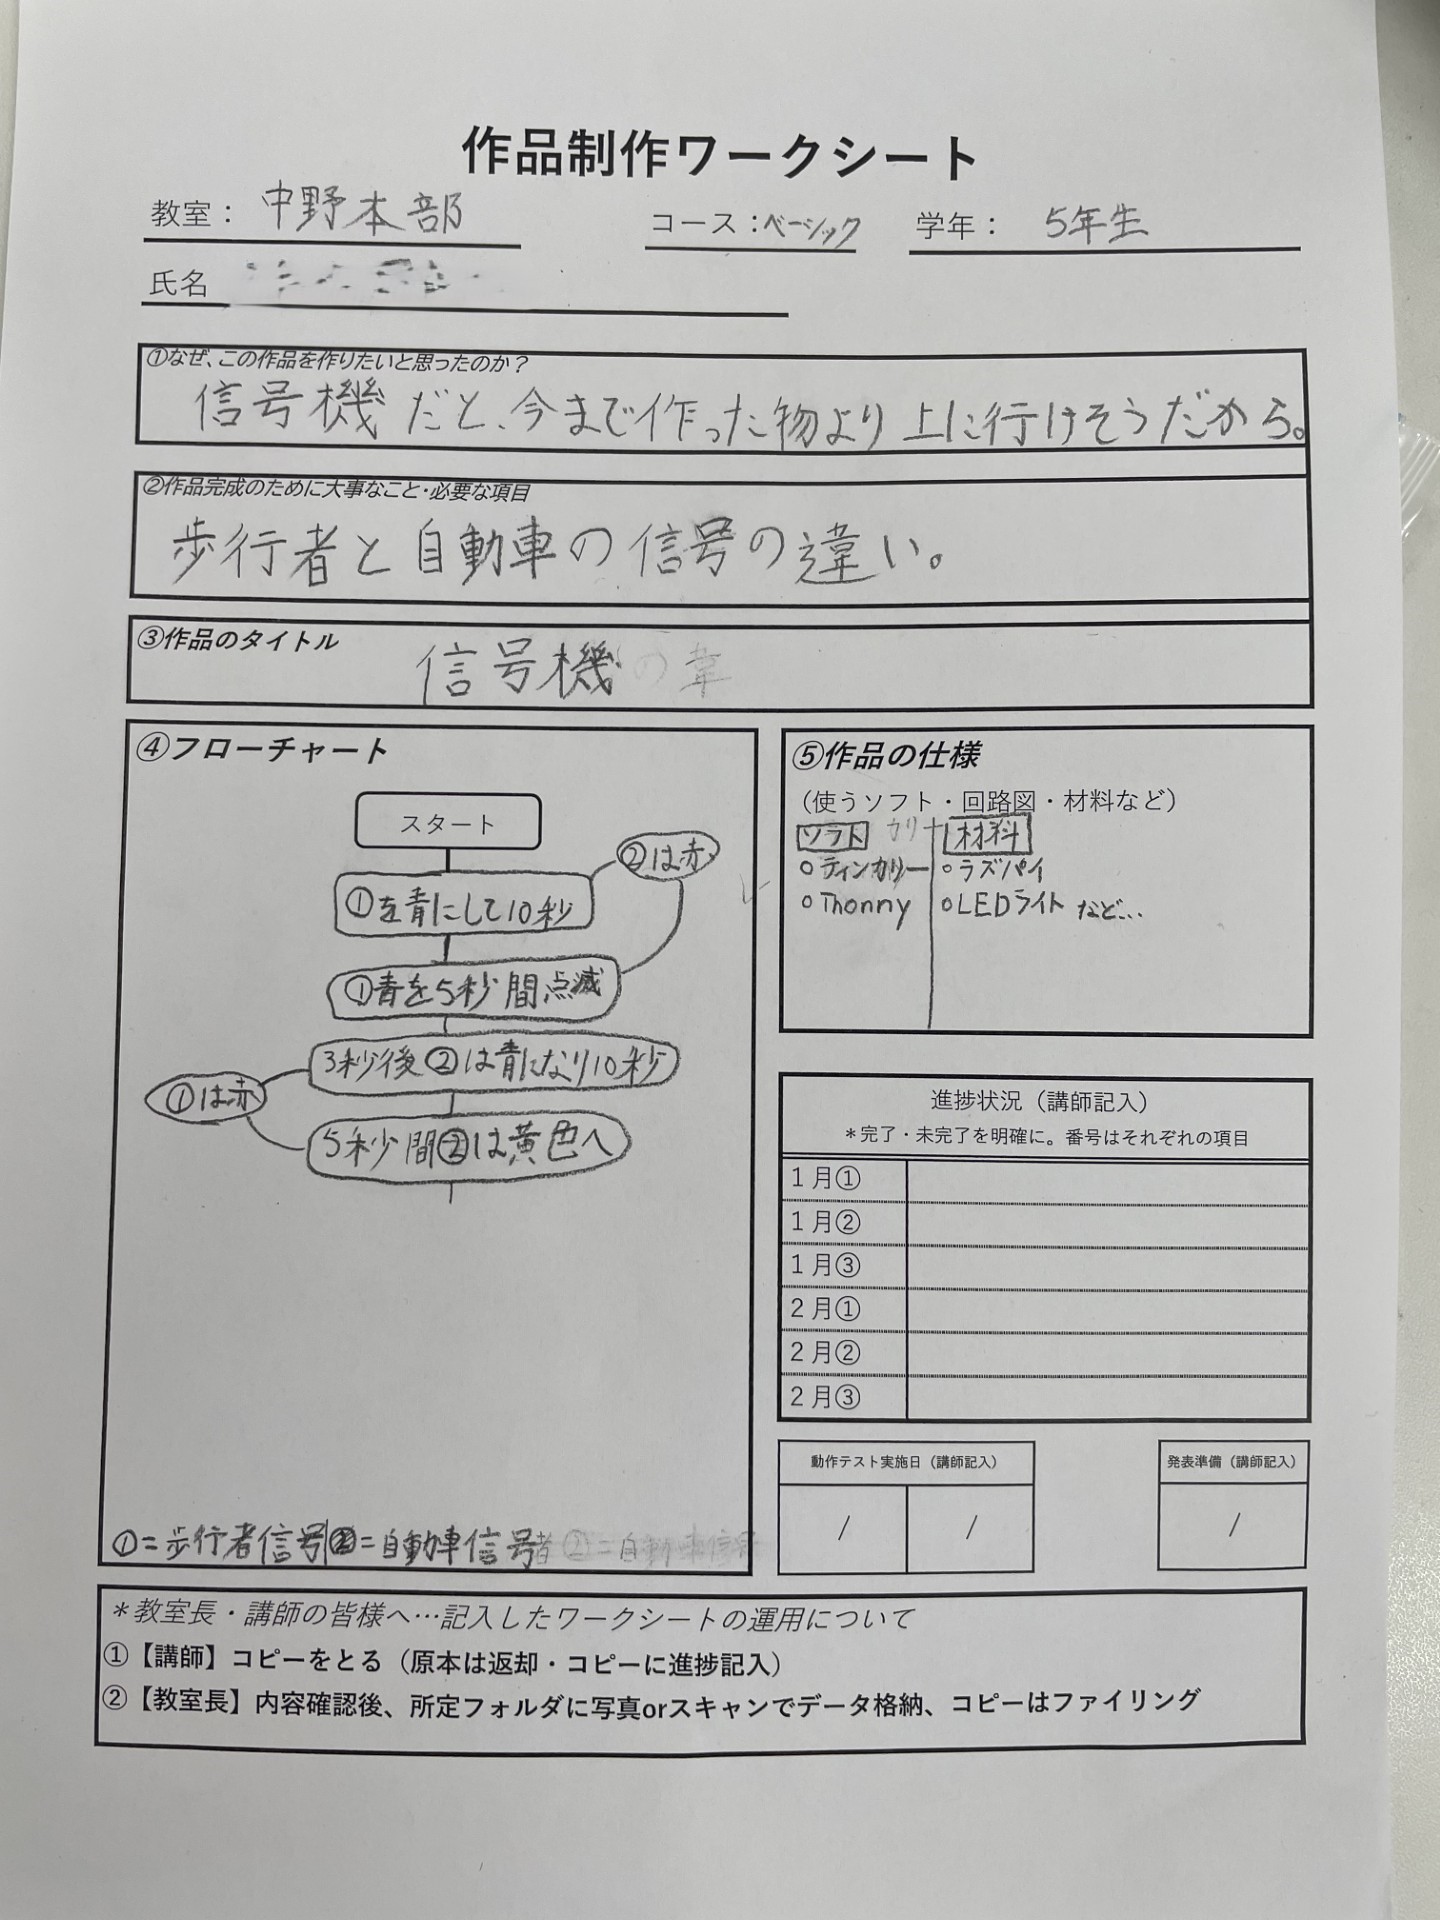 作品制作ワークシート
教室： 中野本部
コース：ベーシック
学年： 5年生
氏名
①なぜ、この作品を作りたいと思ったのか？
信号機だと、今まで作った物より上に行けそうだから。
②作品完成のために大事なこと・必要な項目
歩行者と自動車の信号の違い。
③作品のタイトル
信号機
④フローチャート
スタート
②は赤
①を青にして10秒
①青を5秒間点滅
3秒後②は青になり10秒
①は赤
5秒間②は黄色へ
①=歩行者信号②=自動車信号
⑤作品の仕様
（使うソフト・回路図・材料など）
ソフト 材料
○ティンカリー ○ラズパイ
○Thonny ○LEDライト など…
進捗状況（講師記入）
＊完了・未完了を明確に。番号はそれぞれの項目
1月①
1月②
1月③
2月①
2月②
2月③
動作テスト実施日（講師記入）
/ /
発表準備（講師記入）
/
＊教室長・講師の皆様へ…記入したワークシートの運用について
①【講師】コピーをとる（原本は返却・コピーに進捗記入）
②【教室長】内容確認後、所定フォルダに写真orスキャンでデータ格納、コピーはファイリング